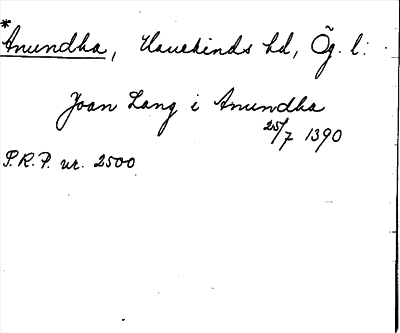 *
Anundha, Hanekinds hd, Ög. l:
Joan Lang i Anundha
25/7 1390
P.R.P. nr. 2500